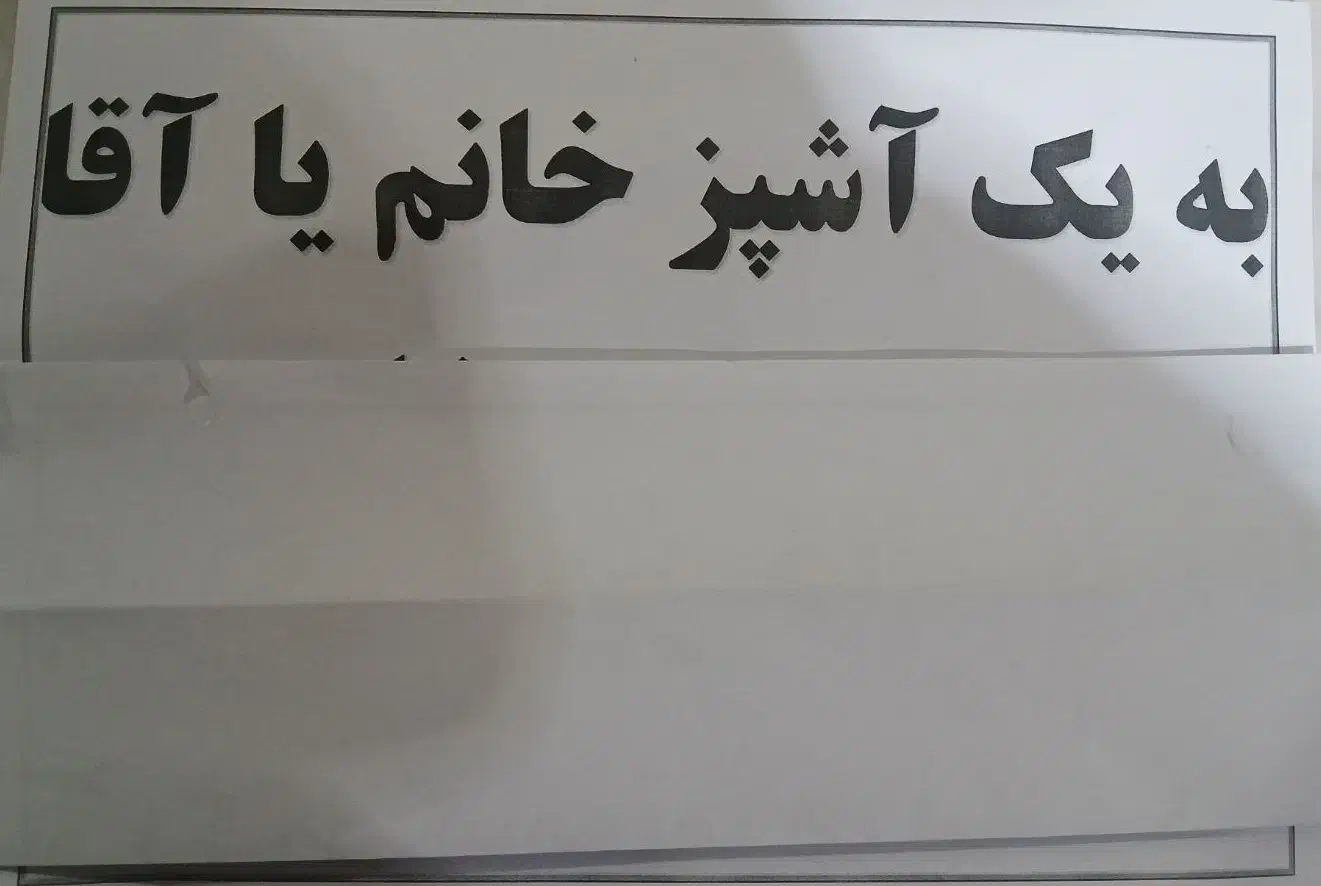 به یک آشپز خانم یا آقا